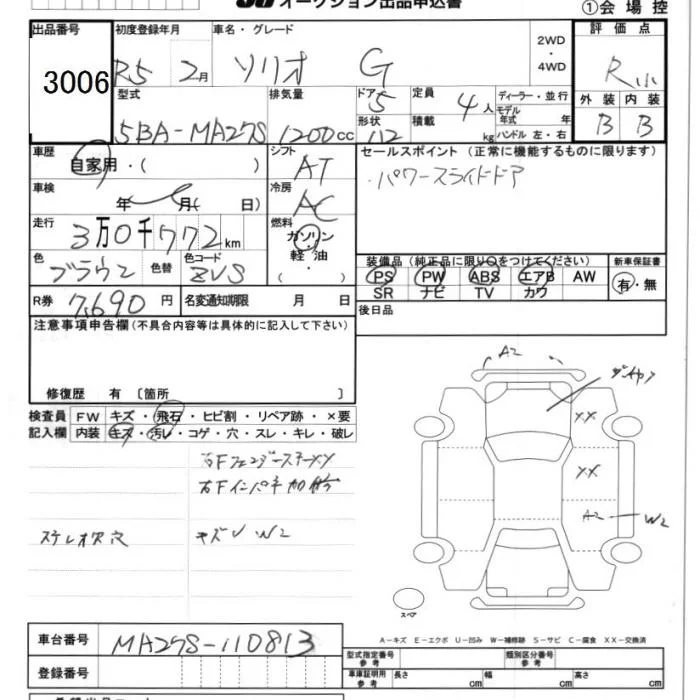 オークション出品申込書
①会場控
出品番号 初度登録年月 車名・グレード 2WD・4WD 評価点
3006 R5 2月 ソリオ G R小
型式 排気量 ドア 5 定員 4人 ディーラー・並行 外装 内装
5BA-MA27S 1200cc 形状 112 積載 kg モデル年式 年 ハンドル 左・右 B B
車歴 自家用・( ) シフト AT セールスポイント(正常に機能するものに限ります)
車検 年 月( 日) 冷房 AC ・パワースライドドア
走行 3万0千772km 燃料 ガソリン・軽油( )
色 ブラウン 色替 色コード ZVS
装備品(純正品に限り○をつけてください) 新車保証書
PS PW ABS エアB AW 有・無
SR ナビ TV カワ
R券 7,690円 名変通知期限 月 日 後日品
注意事項申告欄(不具合内容等は具体的に記入して下さい)
修復歴 有 〔箇所 〕
検査員 FW キズ・飛石・ヒビ割・リペア跡・×要
記入欄 内装 キズ・汚レ・コゲ・穴・スレ・キレ・破レ
右Fフェンダーステーメメ
右Fインパネ加修
ステレオ穴 キズU W2
A2
XX
XX
A2 W2
スペア
A-キズ E-エクボ U-凹み W-補修跡 S-サビ C-腐食 XX-交換済
車台番号 MA27S-110813
登録番号
型式指定番号 参考 類別区分番号 参考
車庫証明用 参考 長さ cm 幅 cm 高さ cm